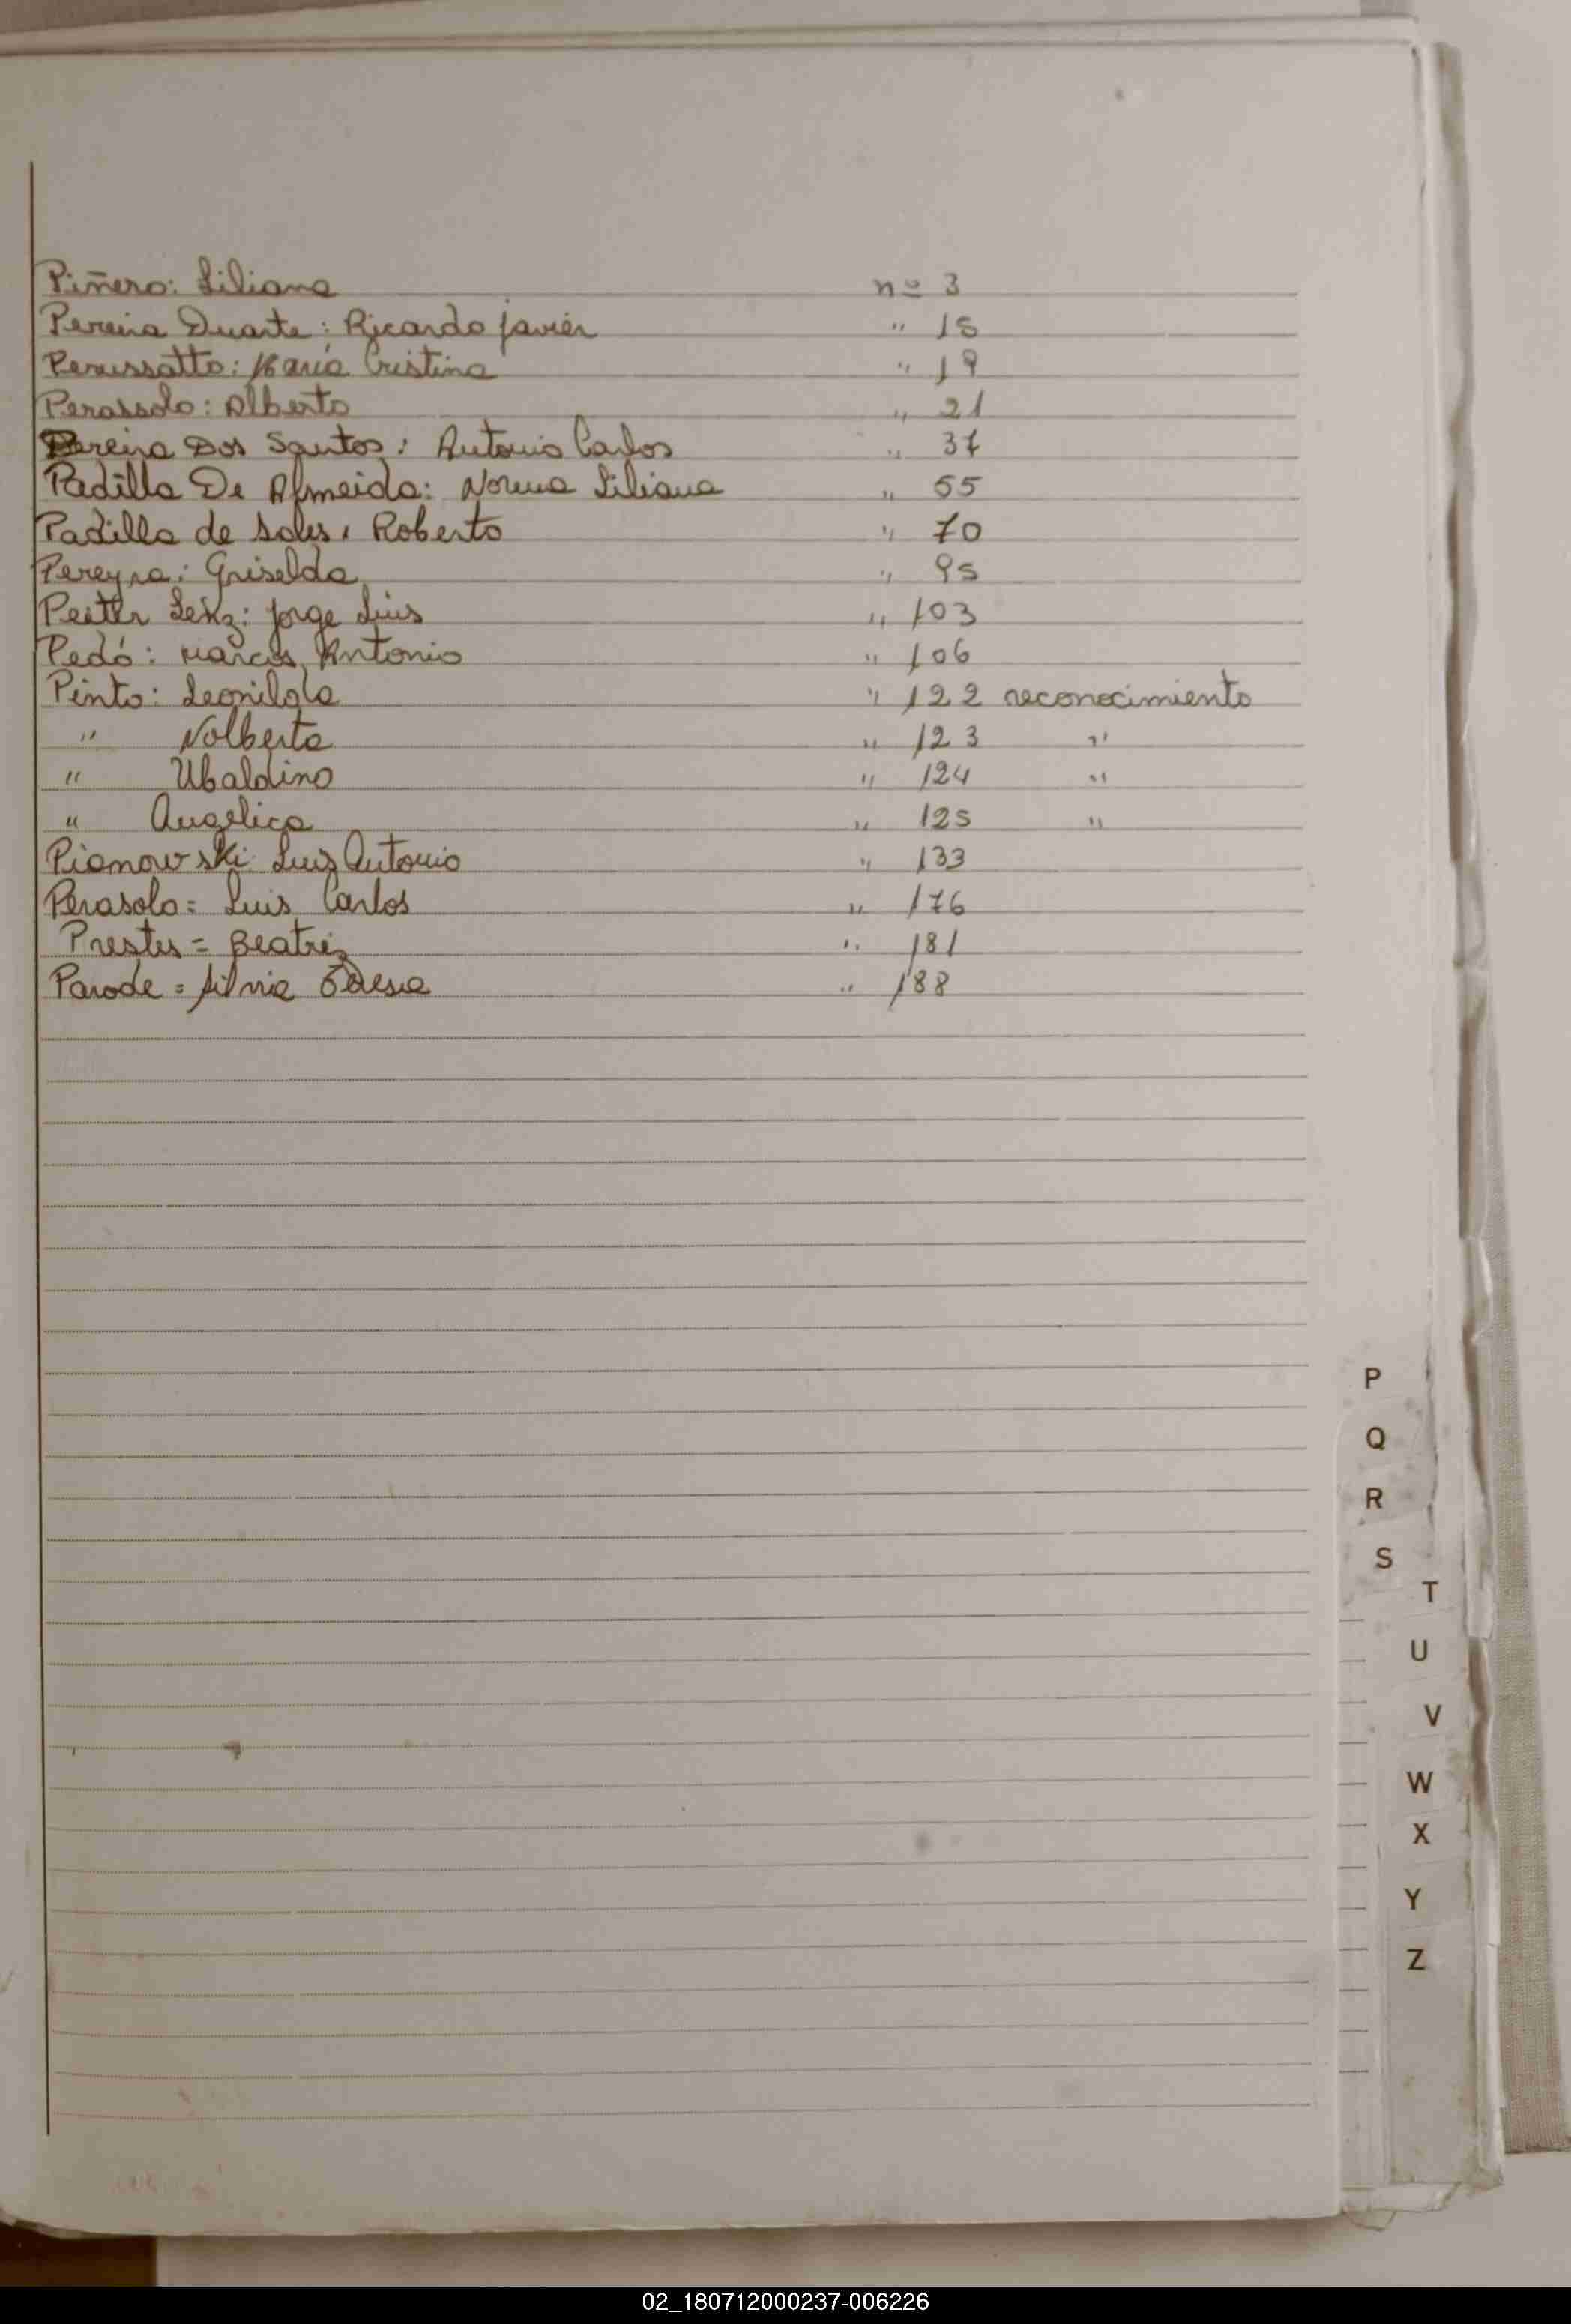 Piñero: Liliana nº 3
Pereira Duarte: Ricardo Javier " 15
Perussatto: María Cristina " 19
Perassolo: Alberto " 21
Pereira Dos Santos: Antonio Carlos " 37
Padilla De Almeida: Norma Liliana " 55
Padilla de Sales, Roberto " 70
Pereyra: Griselda " 95
Peiter Lenz: Jorge Luis " 103
Pedó: Marcos Antonio " 106
Pinto: Leonilda " 122 reconocimiento
" Nolberto " 123 "
" Ubaldino " 124 "
" Angélica " 125 "
Pianowski Luiz Antonio " 133
Perasolo = Luis Carlos " 176
Prestes = Beatriz " 181
Parode = Silvia " 188
P
Q
R
S
T
U
V
W
X
Y
Z
02_180712000237-006226